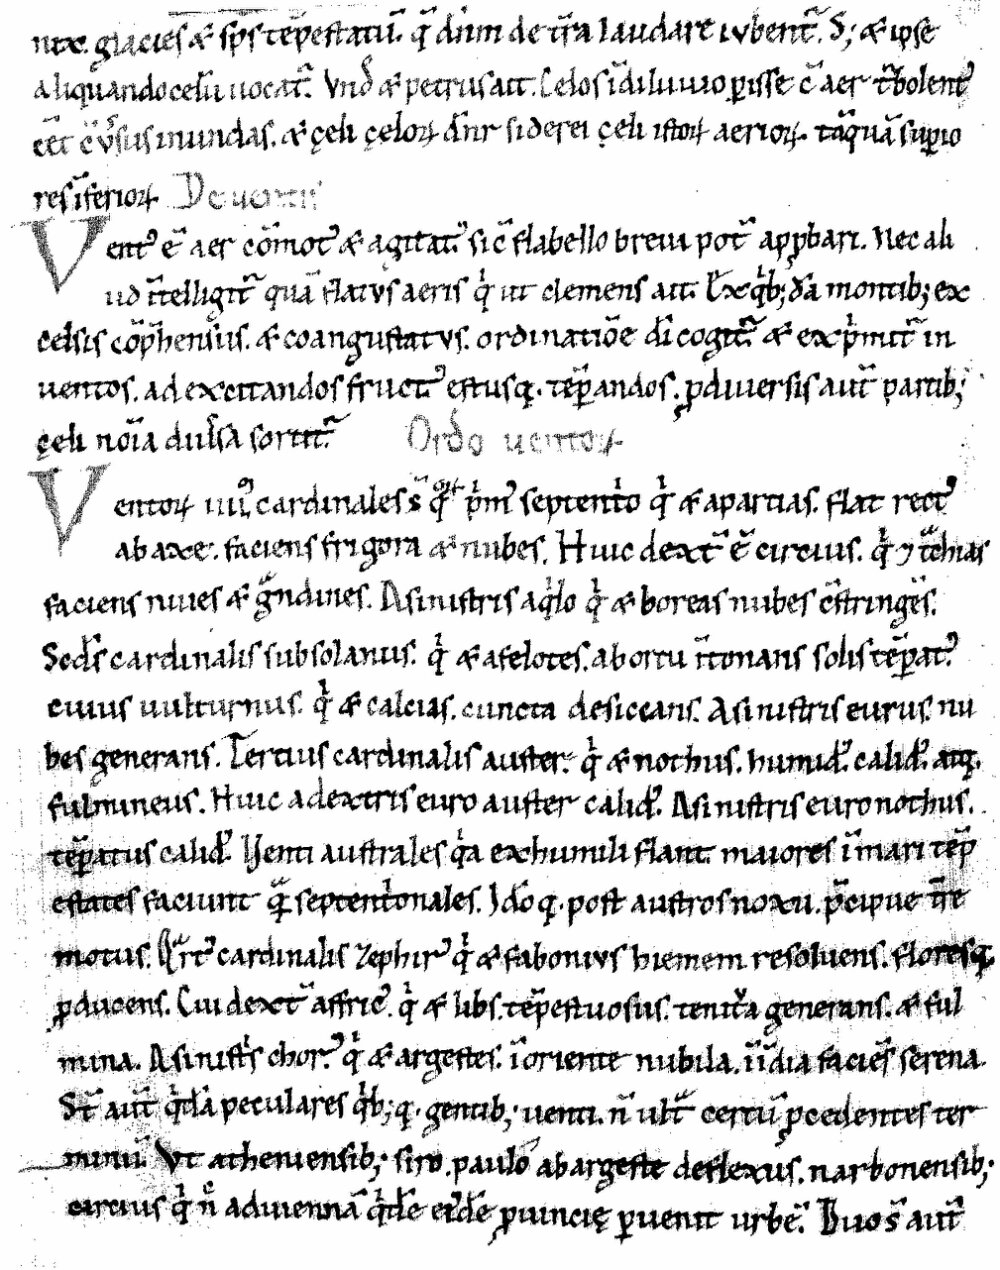 nix. glacies & sp̄s tēpestatū. q̄ dn̄m de tr̄a laudare iubent̄. S; & ipse
aliquando celū uocat̄. Vnď & petrus ait. Celos ī diluuio ꝑisse c̄ aer t̄bolent᾽
ēēt c̄uersus in undas. & cęli cęloꝝ dn̄r siderei cęli istoꝝ aerioꝝ. tāquā suꝑio
res īferioꝝ De uentis
Vent᾽ ē aer cōmot᾽ & agitat᾽. sic̄ flabello breui pot̄ appꝛobari. Nec ali
ud īt̄elligit̄ quā flatus aeris qͥ ut clemens ait. Ex qͥb; dā montib; ex
celsis cōp̄hensus. & coangustatus. ordinatiōe dī cogit̄ & expͥmit̄ in
uentos. ad excitandos fruct᾽ estusq;. tēꝑandos. ꝓ diuersis aut̄ partib;
cęli nōīa diūsa sortit̄ Ordo uentoꝝ
Ventoꝝ iiiiᵒʳ cardinales s̄ pͥm᾽ septentͥo qͥ & aparctias. flat rect᾽
ab axe. faciens frigora & nubes. Huic dext̄ ē circius. qͥ 7 t̄chias
faciens niues & gͣndines. A sinistris aqͥlo qͥ & boreas nubes c̄stringēs.
Secds̄ cardinalis subsolanus. qͥ & afelotes. ab ortu īt̄onans solis tēꝑat᾽.
cuius uulturnus. qͥ & calcias. cuncta desiccans. A sinistris eurus. nu
bes generans. Tertius cardinalis auster. qͥ & nothus. humid᾽. calid᾽. atq;
fulmineus. Huic a dextris euro auster calid᾽. A sinistris euro nothus.
tēꝑatus calid᾽. Uenti australes qͥa ex humili flant. maiores ī mari tēp
estates faciunt q̄ septentͥonales. Idō q; post austros noxii. p̄cipue t̄re
motus. Qͣrt᾽ cardinalis zephir᾽ qͥ & fabonius hiemem resoluens. floresq;
ꝓducens. Cui dext̄ affric᾽. qͥ & libs. tēpestuosus. tonitͮa generans. & ful
mina. A sinistͥs chor᾽ qͥ & argestes. ī oriente nubila. ī īdia faciēs serena.
St̄ aut̄ qͥdā peculares qͥb; q; gentib; uenti. n̄ ult̄ certū ꝓcedentes ter
minū. Vt atheniensib; siro. paulo ab argeste deflexus. narbonensib;
circius qͥ n̄ ad uiennā qͥdē eiͥdē ꝓuincię ꝑuenit urbē. Duo s̄ aut̄